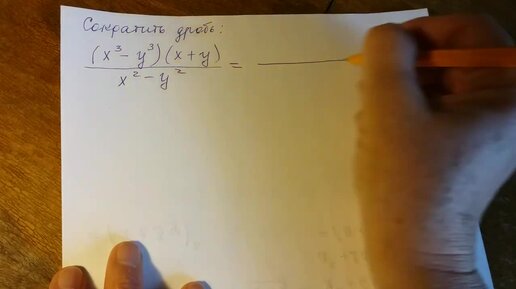 Сократить дробь:
(x³ - y³)(x + y)
x² - y² =